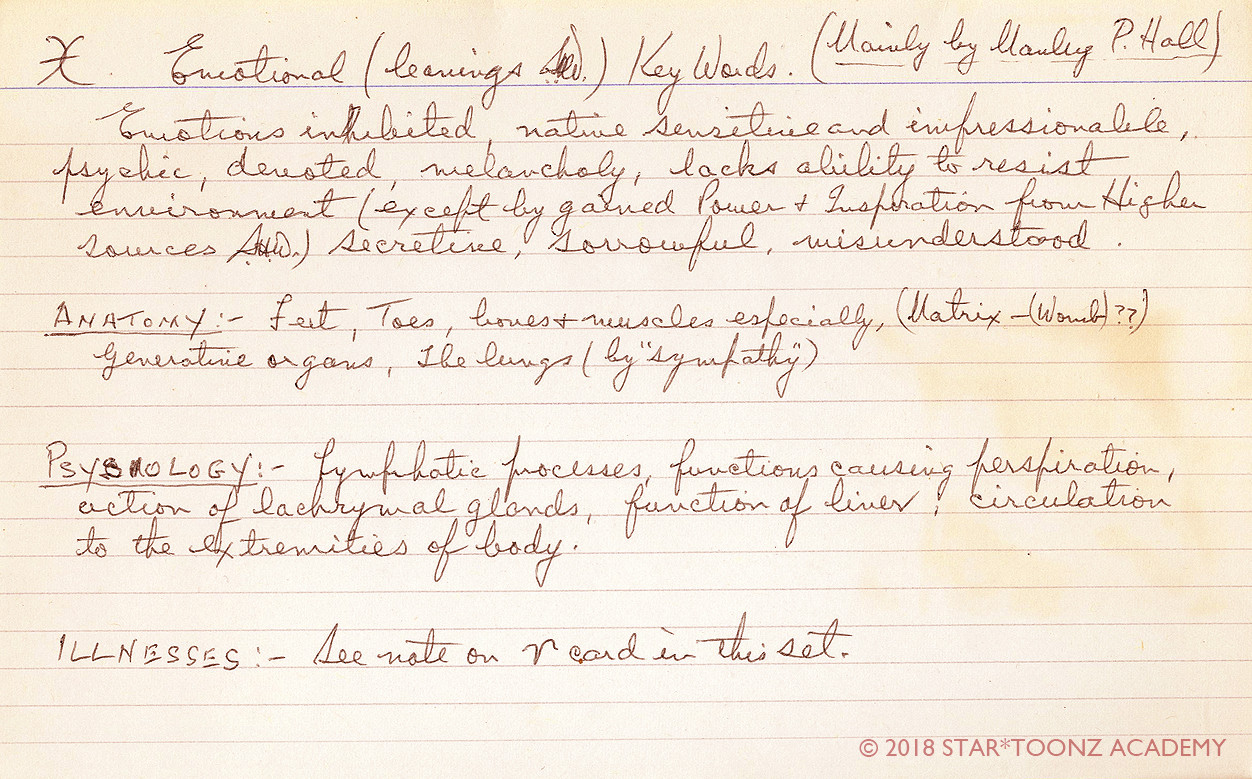 ♓. Emotional (leanings) Key Words. (Mainly by Manley P. Hall)
Emotions inhibited, native sensitive and impressionable,
psychic, devoted, melancholy, lacks ability to resist
environment (except by gained Power & Inspiration from Higher
sources) secretive, sorrowful, misunderstood.
ANATOMY:- Feet, Toes, bones & muscles especially, (Matrix-(Womb)??)
Generative organs, The lungs (by "sympathy")
PSYSHOLOGY:- Lymphatic processes, functions causing perspiration,
action of lachrymal glands, function of liver, circulation
to the extremities of body.
ILLNESSES:- See note on ♈ card in this set.
© 2018 STAR*TOONZ ACADEMY